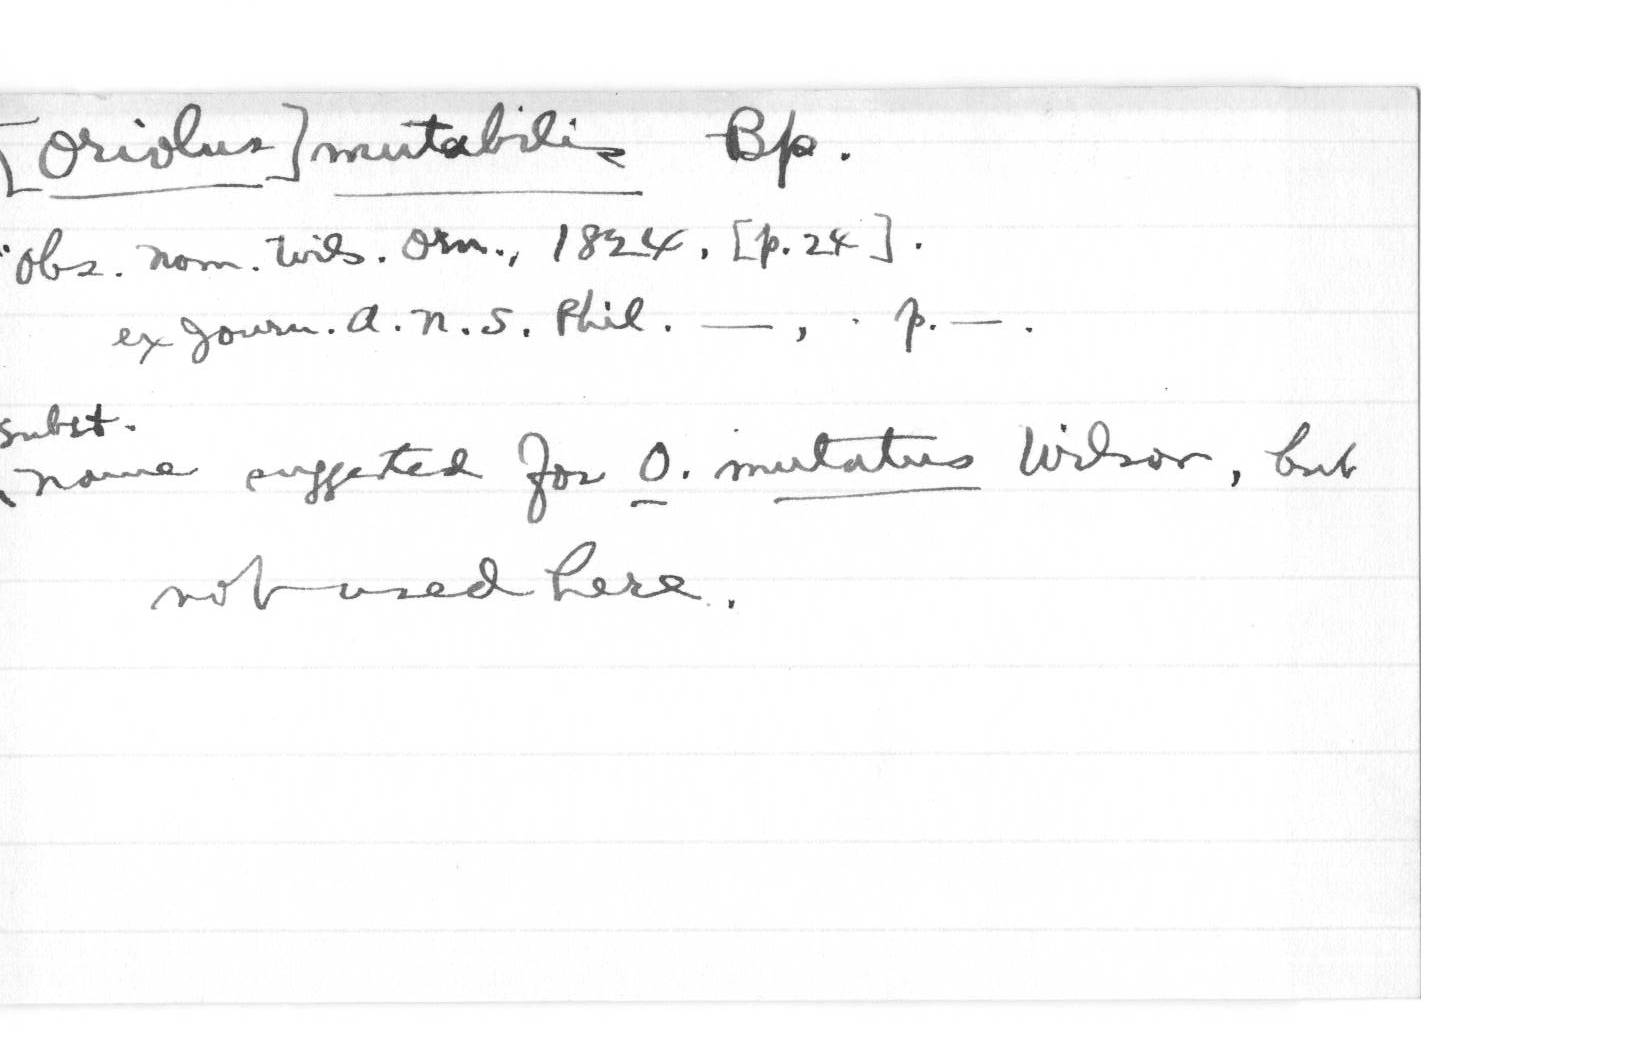 [Oriolus] mutabilis Bp.
Obs. Nom. Wils. Orn., 1824, [p. 24].
ex Journ. A. N. S. Phil. —, p. —.
subst.
name suggested for O. mutatus Wilson, but
not used here.